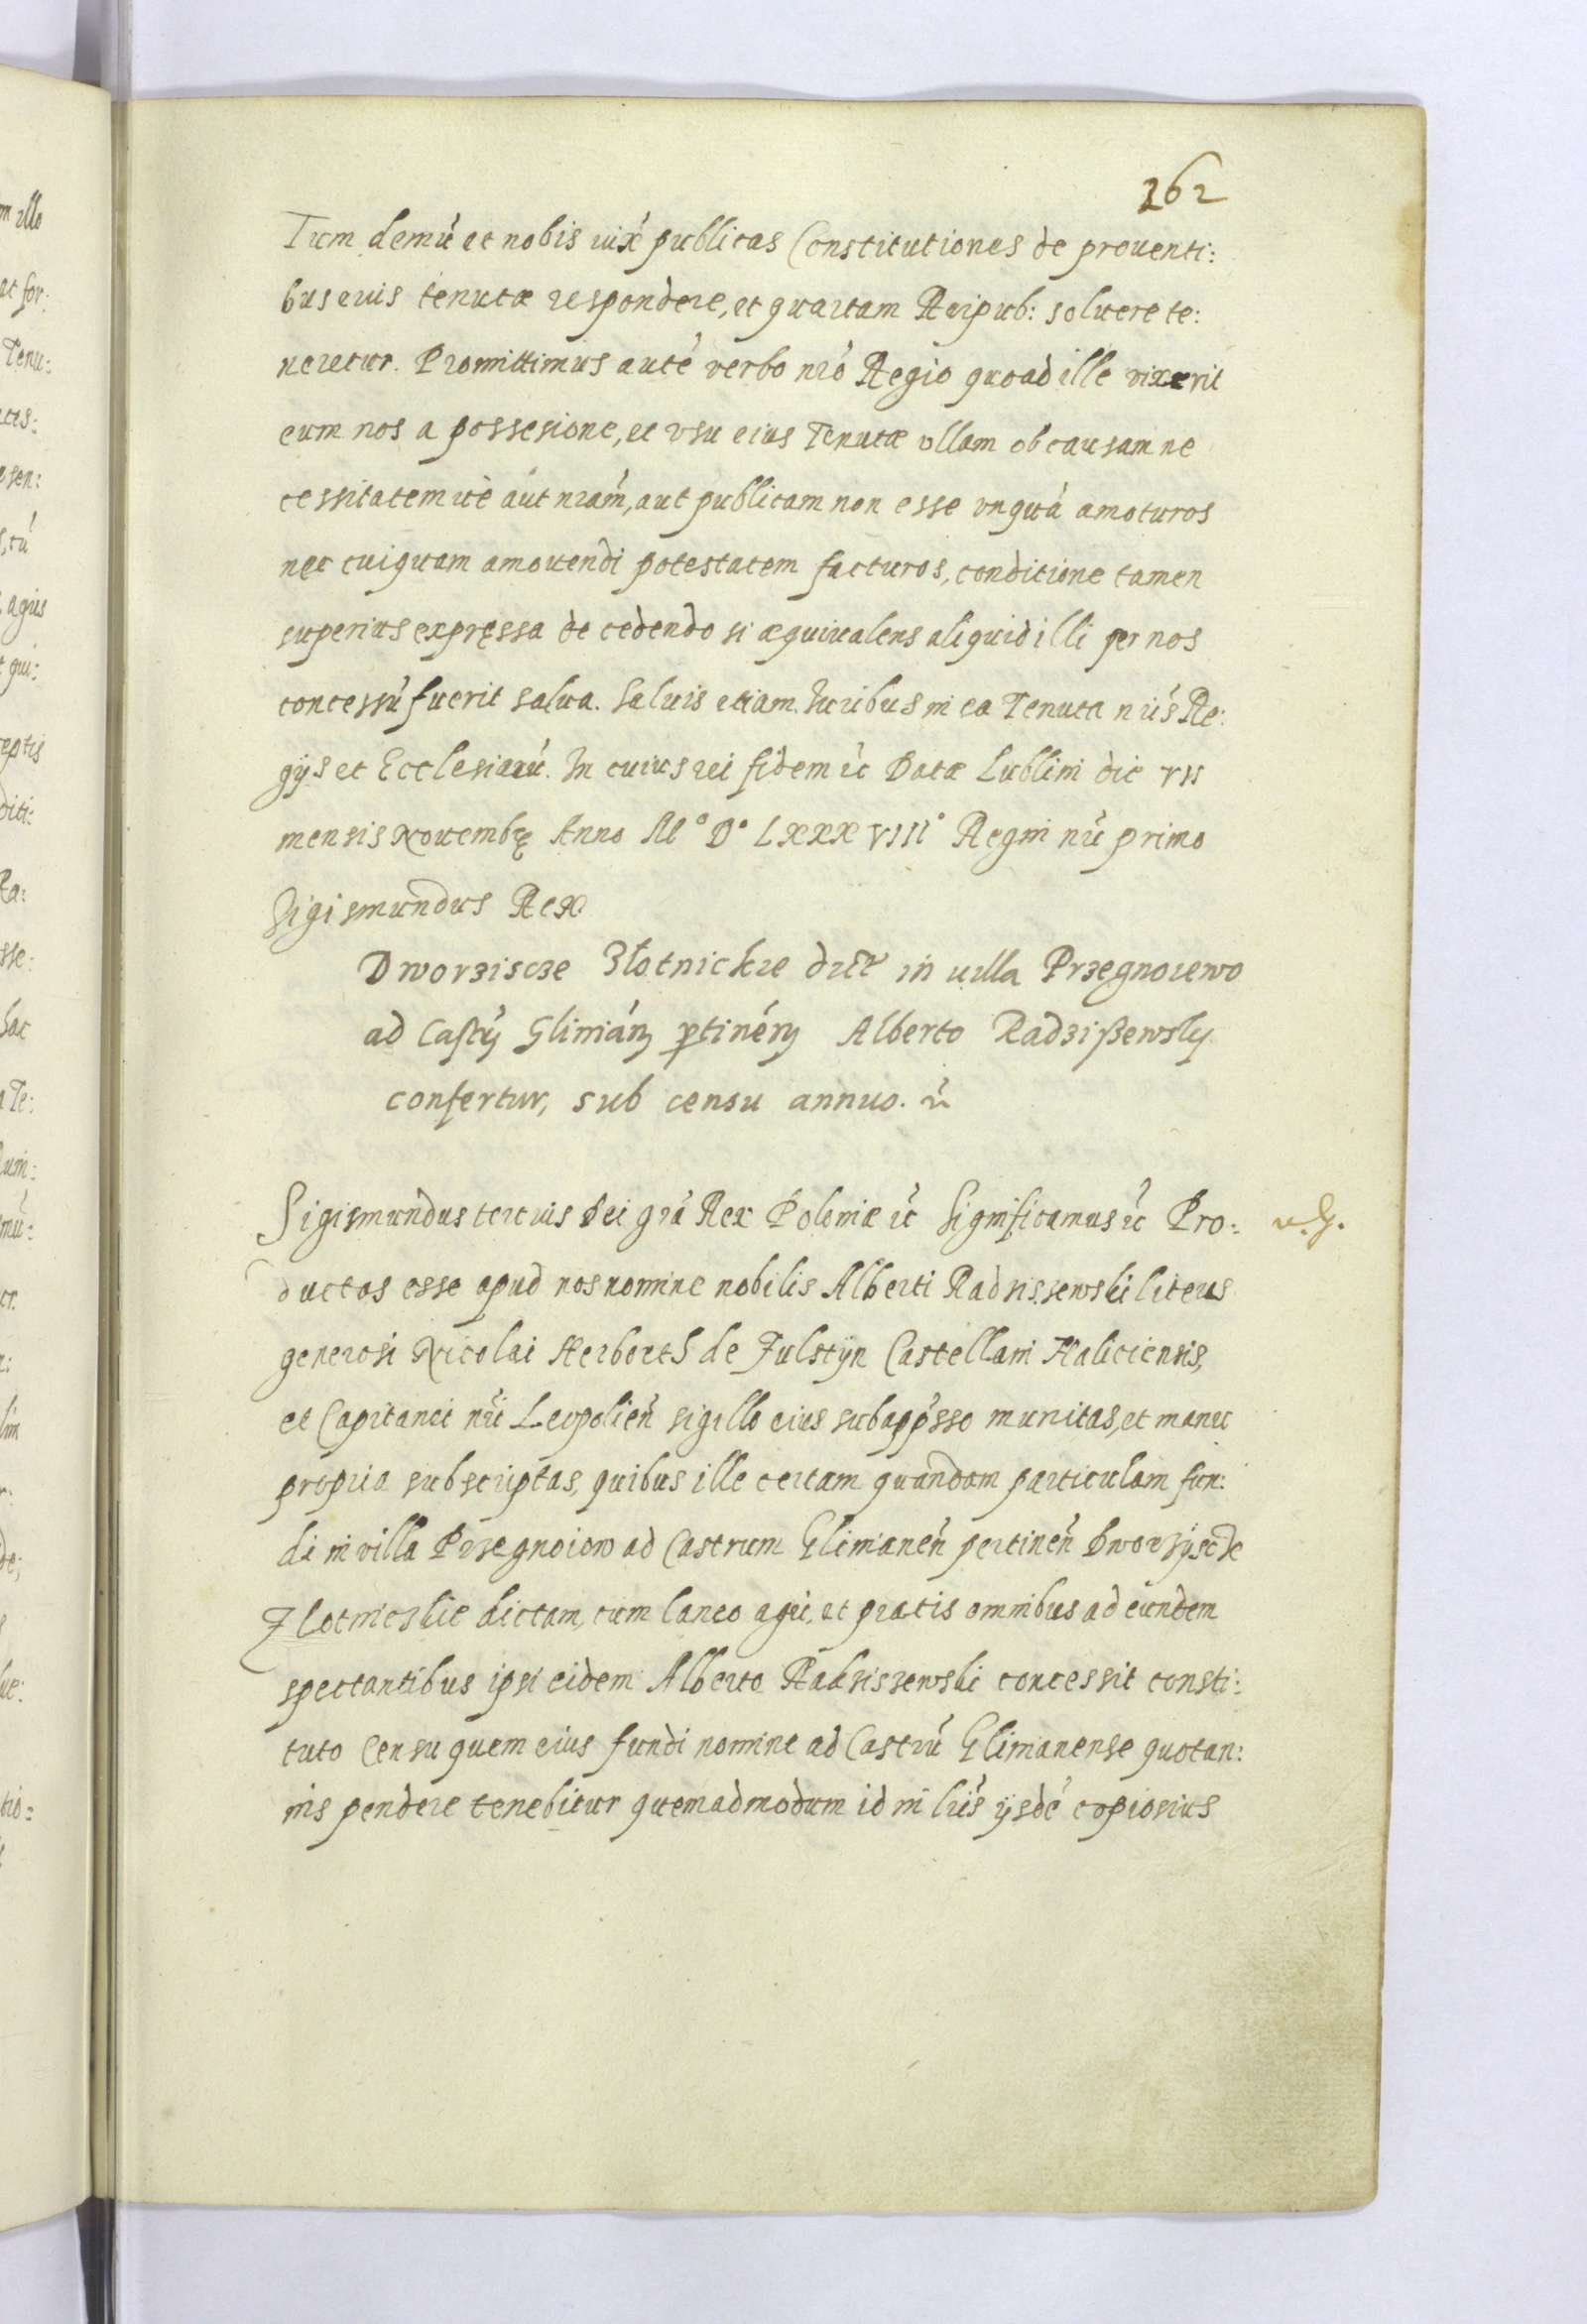 162
Tum demú et nobis iuxᵗ publicas Constitutiones de prouenti:
bus euis tenutæ respondere, et quartam Reipub: soluere te:
neretur. Promittimus auté verbo nró Regio quoad ille vixerit
eum nos a possesione, et vsu eius Tenutæ ullam ob causam ne
cessitatem ué aut nrám, aut publicam non esse vnquá amoturos
nec cuiquam amouendi potestatem facturos, conditione tamen
superius expręssa de cedendo si æquiualens aliquid illi per nos
concessú fuerit salua. Saluis etiam Iuribus in ea Tenuta nrís Re:
gijs et Ecclesiarú. In cuius rei fidem rć Datæ Lublini die VII
mensis Nouembrę Anno M° D° LXXXVIII° Regni nrí primo
Sigismundus Rex
Dworziscze Złotnickie dict in uilla Przegnoiewo
ad Castrú Glinián ꝑtinén Alberto Radzißewsky
confertur, sub censu annuo. rć
Sigismundus tertius Dei grá Rex Poloniæ rć Significamus rć Pro:
ductas esse apud nos nomine nobilis Alberti Radziszewski literas
generosi Nicolai Herborth de Fulstijn Castellani Haliciensis,
et Capitanei nrí Leopolień sigillo eius subapp̃sso munitas, et manu
propria subscriptas, quibus ille certam quandam particulam fun:
di in villa Przegnoiow ad Castrum Glinianeń pertineń Dworzijscze
Zlotniczkie dictam, cum laneo agri, et pratis omnibus ad eundem
spectantibus ipsi eidem Alberto Radziszewski concessit consti:
tuto Censu quem eius fundi nomine ad Castrú Glinianense quotan:
nis pendere tenebitur quemadmodum id in lrís ijsdé copiosius